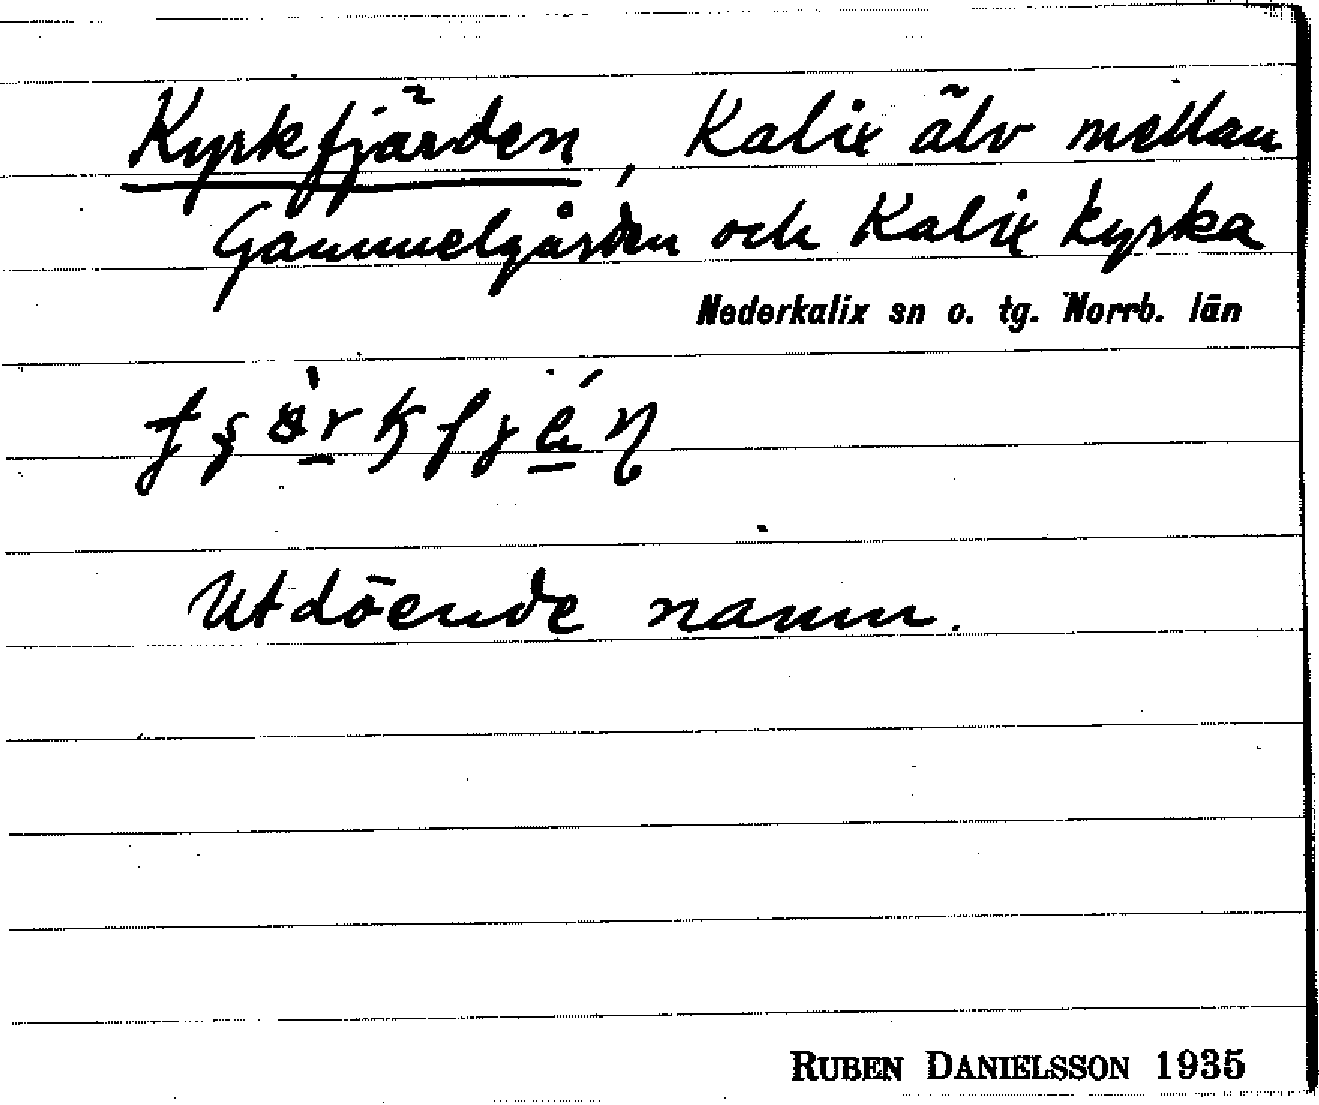 Kyrkfjärden, Kalix älv mellan
Gammelgården och Kalix kyrka
Nederkalix sn o. tg. Norrb. län
Utdöende namn.
RUBEN DANIELSSON 1935